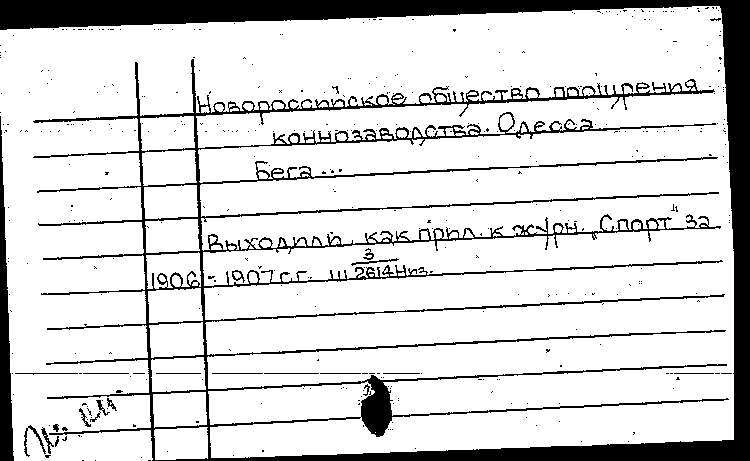 Новороссийское общество поощрения
коннозаводства. Одесса
Бега...
Выходили как прил. к журн. „Спорт" за
1906 - 1907 г.г. Ш 3/2614 Низ.